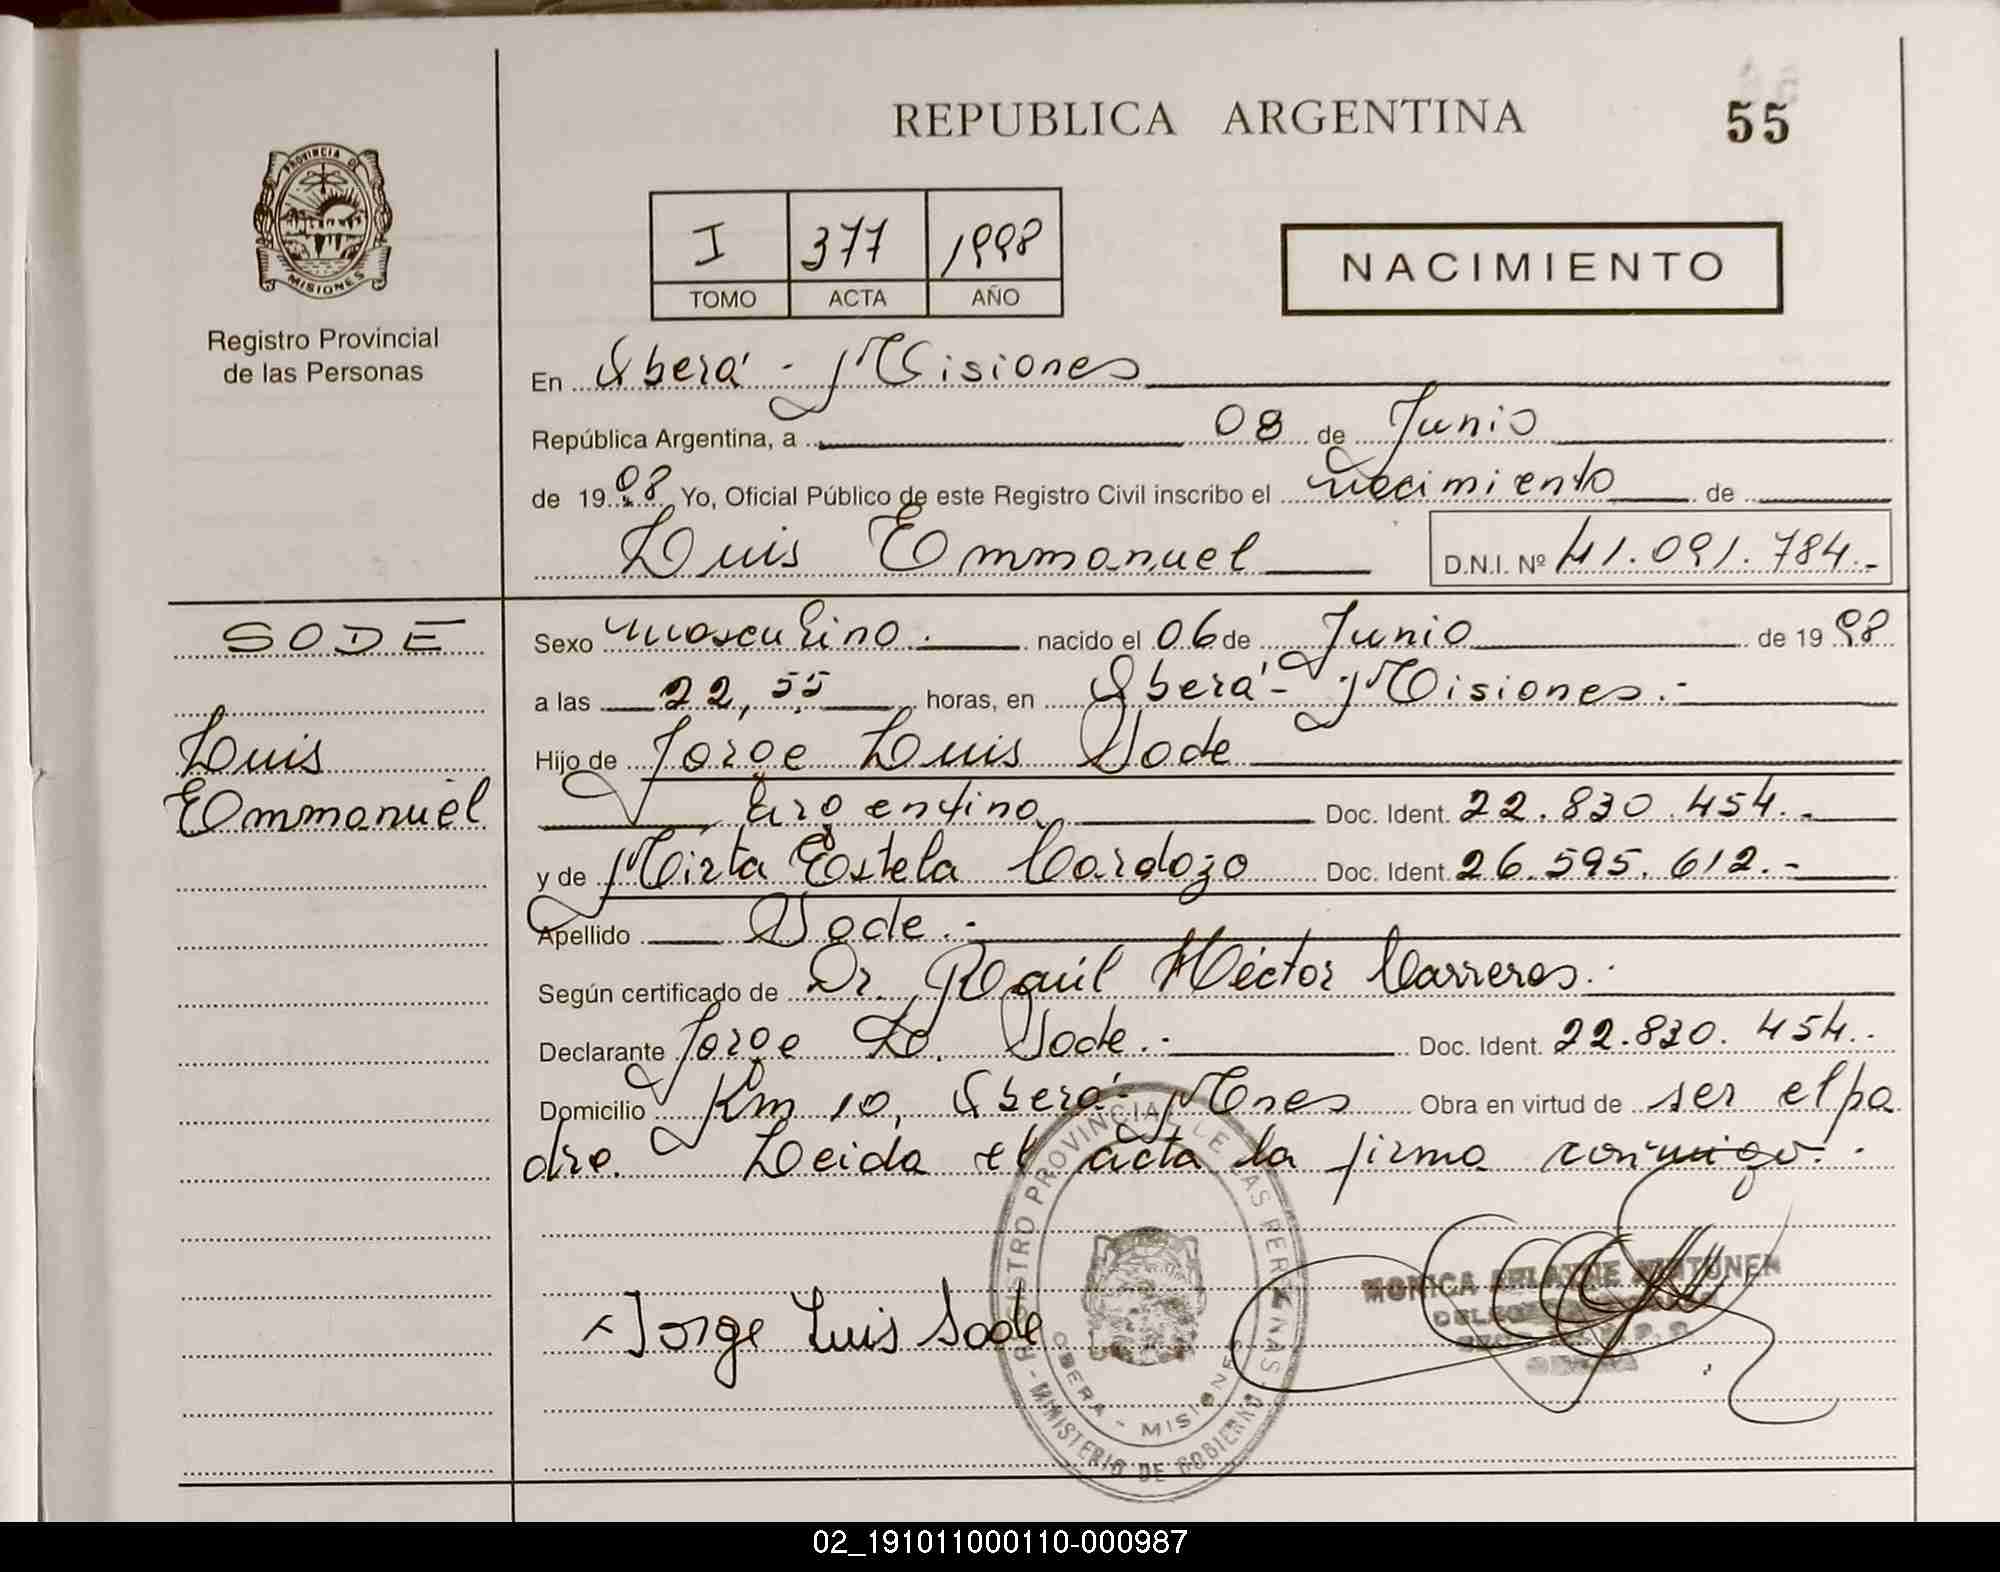 REPUBLICA ARGENTINA
55
PROVINCIA DE
MISIONES
Registro Provincial
de las Personas
I 377 1998
TOMO ACTA AÑO
NACIMIENTO
En Oberá - Misiones
República Argentina, a 08 de Junio
de 1998 Yo, Oficial Público de este Registro Civil inscribo el nacimiento de
Luis Emmanuel D.N.I. Nº 41.091.784.-
SODE
Luis
Emmanuel
Sexo masculino. nacido el 06 de Junio de 1998
a las 22,55 horas, en Oberá - Misiones.-
Hijo de Jorge Luis Sode
Argentino Doc. Ident. 22.830.454.-
y de Mirta Estela Cardozo Doc. Ident. 26.595.612.-
Apellido Sode.-
Según certificado de Dr. Raúl Héctor Carreras.
Declarante Jorge L. Sode.- Doc. Ident. 22.830.454..
Domicilio Km 10, Oberá - Mnes Obra en virtud de ser el pa
dre. Leida el acta la firma conmigo.
Jorge Luis Sode
REGISTRO PROVINCIAL DE LAS PERSONAS
OBERA - MISIONES
MINISTERIO DE GOBIERNO
MONICA
02_191011000110-000987